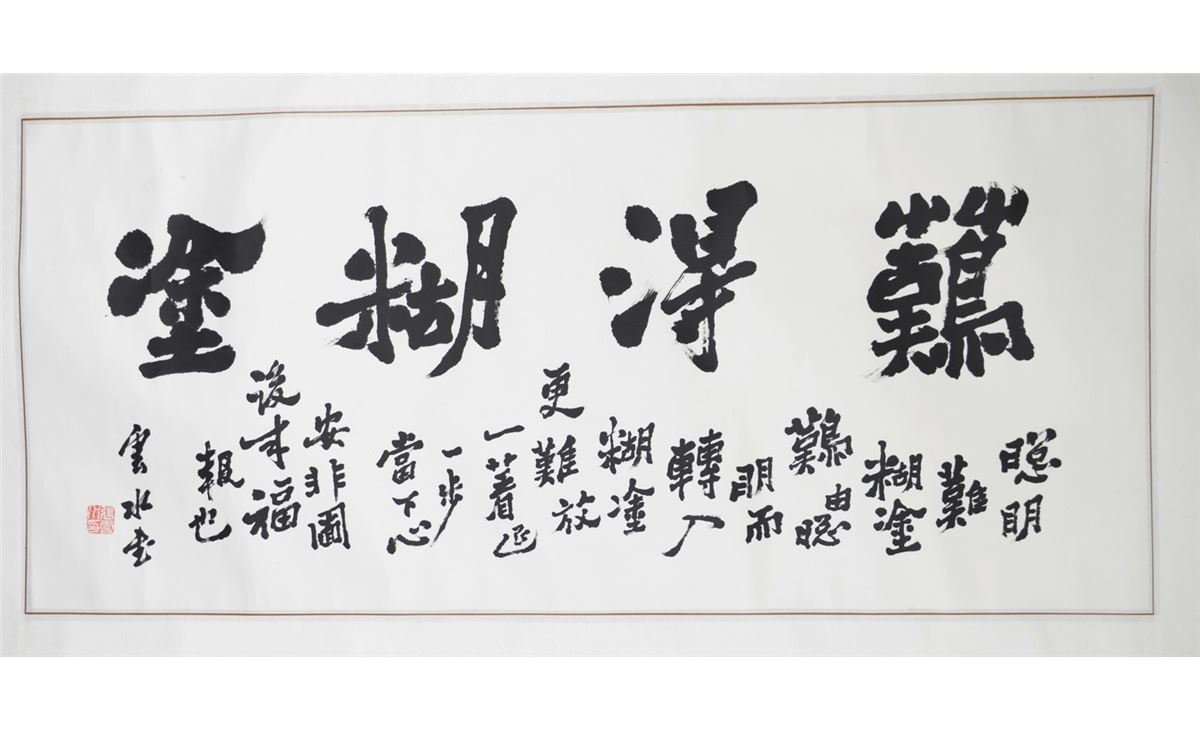 難得糊塗
聰明
難
糊塗
難由聰
明而
轉入
糊塗
更難放
一着退
一步
當下心
安非圖
後来福
報也
雲水书